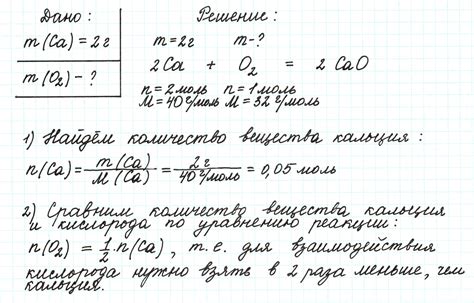 Дано:
m(Ca) = 2г
m(O₂) - ?
Решение:
m=2г m-?
2Ca + O₂ = 2 CaO
n=2моль n=1моль
M=40г/моль M=32г/моль
1) Найдём количество вещества кальция:
n(Ca)= m(Ca)/M(Ca) = 2г/40г/моль = 0,05 моль
2) Сравним количество вещества кальция
и кислорода по уравнению реакции:
n(O₂) = 1/2·n(Ca), т.е. для взаимодействия
кислорода нужно взять в 2 раза меньше, чем
кальция.